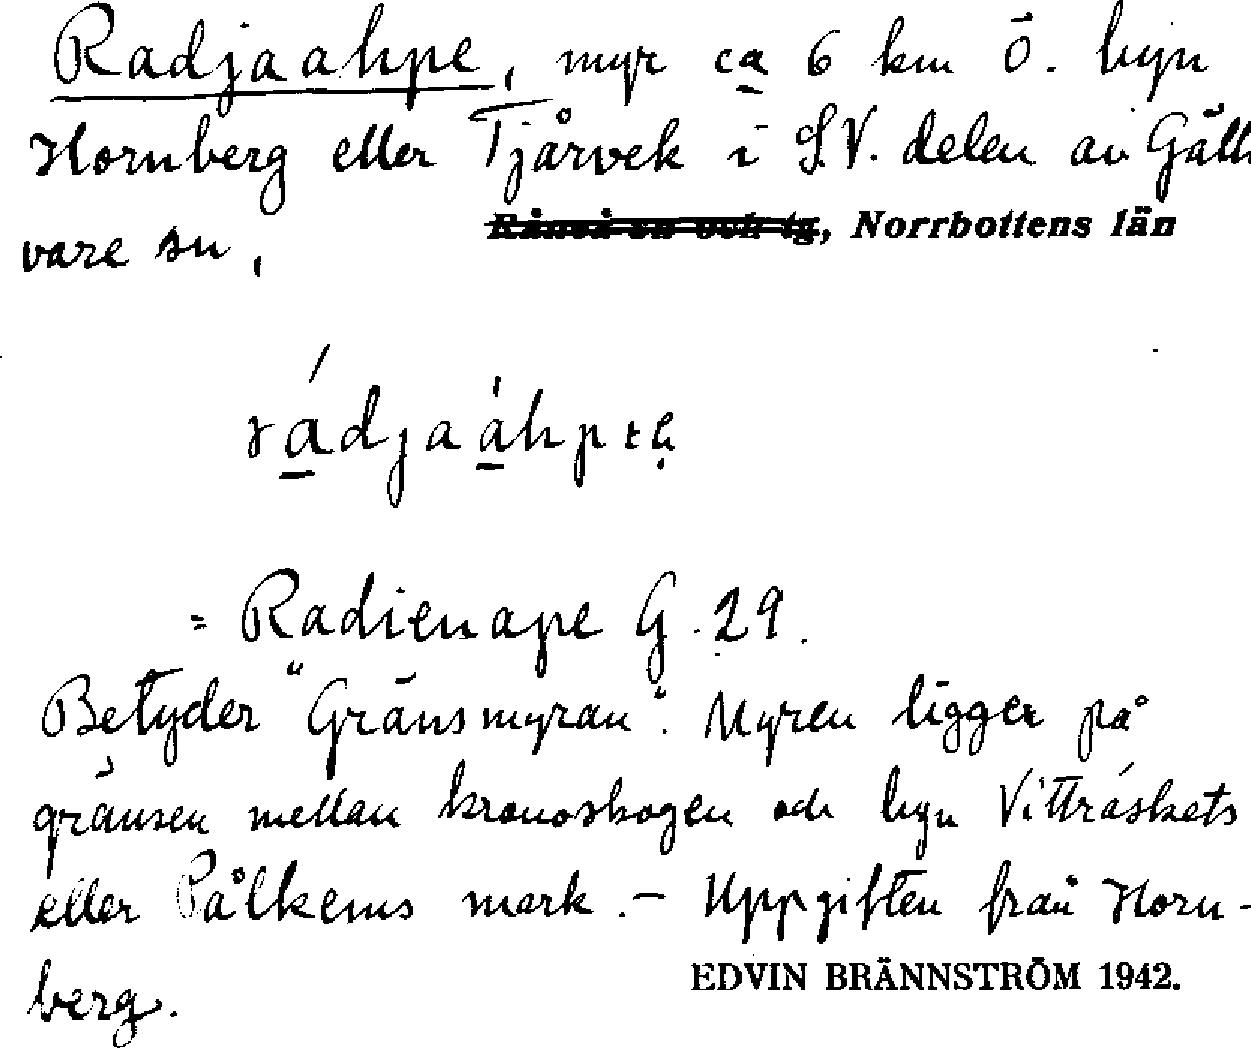 Radjaahpe, myr ca 6 km Ö. byn
Hornberg eller Tjårvek i S.V. delen av Gälli
vare sn,
Råneå sn och tg, Norrbottens län
rádjaàhpɛ
= Radienape G. 29.
Betyder "Gränsmyran". Myren ligger på
gränsen mellan kronoskogen och byn Vitträskets
eller Pålkems mark. – Uppgiften från Horn-
berg.
EDVIN BRÄNNSTRÖM 1942.